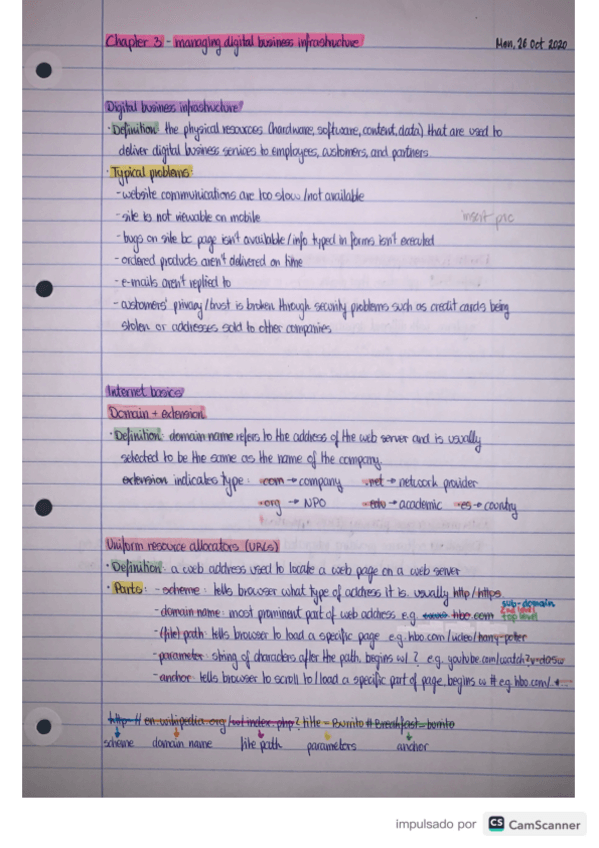 Chapter 3 - managing digital business infrastructure
Mon, 26 Oct 2020
Digital business infrastructure
· Definition: the physical resources (hardware, software, content, data) that are used to
deliver digital business services to employees, customers, and partners
· Typical problems:
- website communications are too slow / not available
- site is not viewable on mobile
insert pic
- bugs on site bc page isn't available / info typed in forms isn't executed
- ordered products aren't delivered on time
- e-mails aren't replied to
- customers' privacy / trust is broken through security problems such as credit cards being
stolen or addresses sold to other companies
Internet basics
Domain + extension
· Definition: domain name refers to the address of the web server and is usually
selected to be the same as the name of the company.
extension indicates type: .com → company .net → network provider
.org → NPO .edu → academic .es → country
Uniform resource allocators (URLs)
· Definition: a web address used to locate a web page on a web server
· Parts: - scheme: tells browser what type of address it is. usually http / https
sub-domain
- domain name: most prominent part of web address e.g. hbo.com
top level
- (file) path: tells browser to load a specific page e.g. hbo.com/video/harry-potter
- parameter: string of characters after the path, begins w/ ? e.g. youtube.com/watch?v=
- anchor: tells browser to scroll to / load a specific part of page, begins w # e.g. hbo.com/
http:// en.wikipedia.org /w/index.php? title = Burrito # Breakfast-burrito
scheme domain name file path parameters anchor
impulsado por CS CamScanner